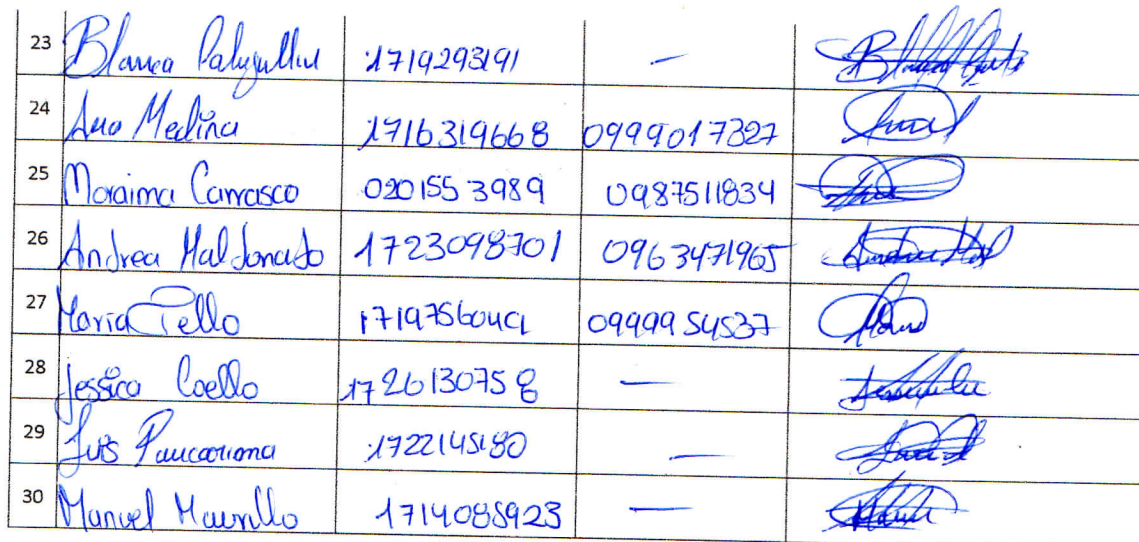 23 Blanca 1719293191 —
24 Ana Medina 1716319668 0999017327
25 Moraima Carrasco 0201553989 0987511834
26 Andrea Maldonado 1723098701 0963471965
27 Maria Tello 0999954537
28 Jessica Coello 1726130758 —
29 Luis 1722145180 —
30 Manuel 1714085923 —